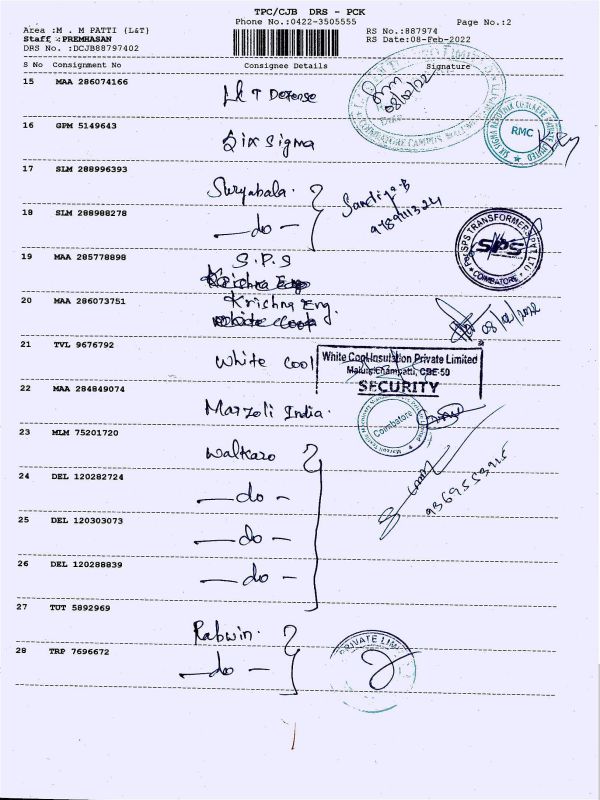 TPC/CJB DRS - PCK
Phone No.:0422-3505555 Page No.:2
Area :M . M PATTI (L&T) RS No.:887974
Staff :PREMHASAN RS Date:08-Feb-2022
DRS No. :DCJB88797402
S No Consignment No Consignee Details Signature
15 MAA 286074166
L&T Defense
08/02/22
COIMBATORE CAMPUS
16 GPM 5149643
Six Sigma
RMC
17 SLM 288996393
Suryabala.
Sandiya.B
18 SLM 288988278
—do—
SPS TRANSFORMERS PVT LTD
SPS
COIMBATORE
19 MAA 285778898
S.P.S
20 MAA 286073751
Krishna Eng.
08/02/2022
21 TVL 9676792
White Cool
White Cool Insulation Private Limited
SECURITY
22 MAA 284849074
Marzoli India.
Coimbatore
23 MLM 75201720
Walkaro
24 DEL 120282724
—do—
25 DEL 120303073
—do—
26 DEL 120288839
—do—
27 TUT 5892969
Rabwin.
28 TRP 7696672
—do—
PRIVATE LIM